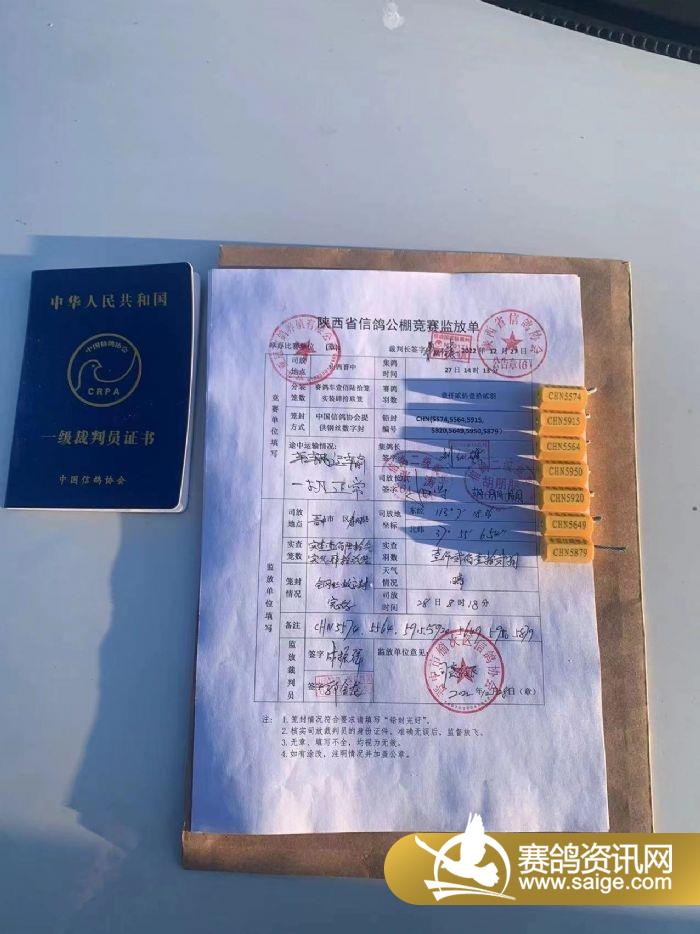 中华人民共和国
中国信鸽协会
CRPA
一级裁判员证书
中国信鸽协会
陕西省信鸽公棚竞赛监放单
裁判长签字 2022年12月27日
陕西省信鸽协会
竞赛单位填写
司放地点 山西晋中 集鸽时间 27日14时
分装笼数 赛鸽车壹佰陆拾笼 实装肆拾玖笼 赛鸽羽数
笼封方式 中国信鸽协会提供钢丝数字封 铅封编号 CHN(5574,5564,5915,5920,5649,5950,5879)
途中运输情况: 集鸽长签字
一切正常
司放长签字
监放单位填写
司放地点 晋中市 区 司放地坐标 东经 113°7′ 北纬 37°
实查笼数 实查羽数
笼封情况 钢丝数字封完好 天气情况 晴
司放时间 28日8时18分
备注 CHN5574, 5564, 5915, 5920, 5649, 5950, 5879
监放裁判员 签字
签字
监放单位意见:
晋中市榆次区信鸽协会
2022年12月28日(章)
CHN5574
CHN5915
CHN5564
CHN5950
CHN5920
CHN5649
CHN5879
注: 1. 笼封情况符合要求请填写“铅封完好”。
2. 核实司放裁判员的身份证件、准确无误后、监督放飞。
3. 无章、填写不全、均视为无效。
4. 如有涂泼、注明情况并加盖公章。
赛鸽资讯网
www.saige.com